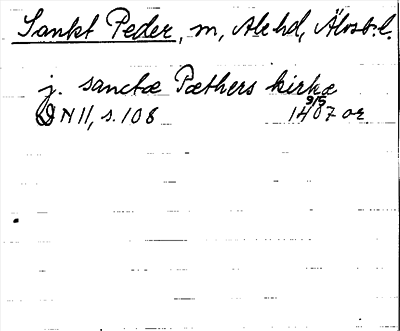 Sankt Peder, m, Ale hd, Älvsb. l.
j. sanctæ Pæthers kirkæ
DN II, s. 108 9/5 1407 or